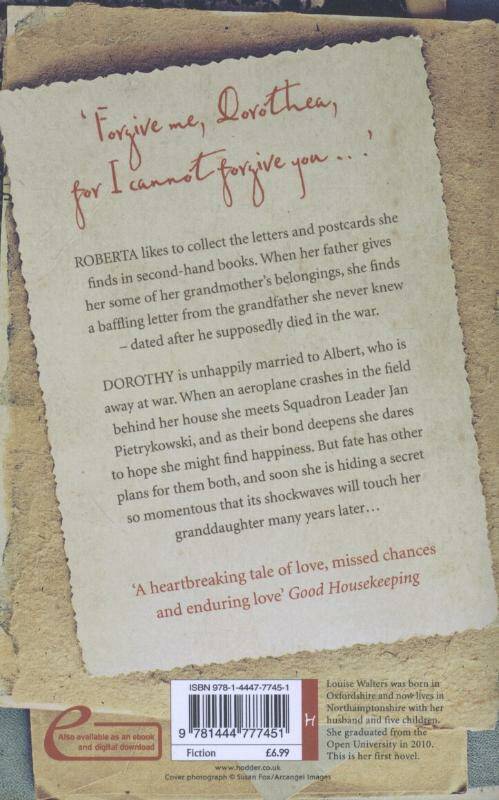 'Forgive me, Dorothea,
for I cannot forgive you...'
ROBERTA likes to collect the letters and postcards she
finds in second-hand books. When her father gives
her some of her grandmother's belongings, she finds
a baffling letter from the grandfather she never knew
– dated after he supposedly died in the war.
DOROTHY is unhappily married to Albert, who is
away at war. When an aeroplane crashes in the field
behind her house she meets Squadron Leader Jan
Pietrykowski, and as their bond deepens she dares
to hope she might find happiness. But fate has other
plans for them both, and soon she is hiding a secret
so momentous that its shockwaves will touch her
granddaughter many years later...
'A heartbreaking tale of love, missed chances
and enduring love' Good Housekeeping
e
Also available as an ebook
and digital download
ISBN 978-1-4447-7745-1
9 781444 777451
Fiction £6.99
H
Louise Walters was born in
Oxfordshire and now lives in
Northamptonshire with her
husband and five children.
She graduated from the
Open University in 2010.
This is her first novel.
www.hodder.co.uk
Cover photograph © Susan Fox/Arcangel Images